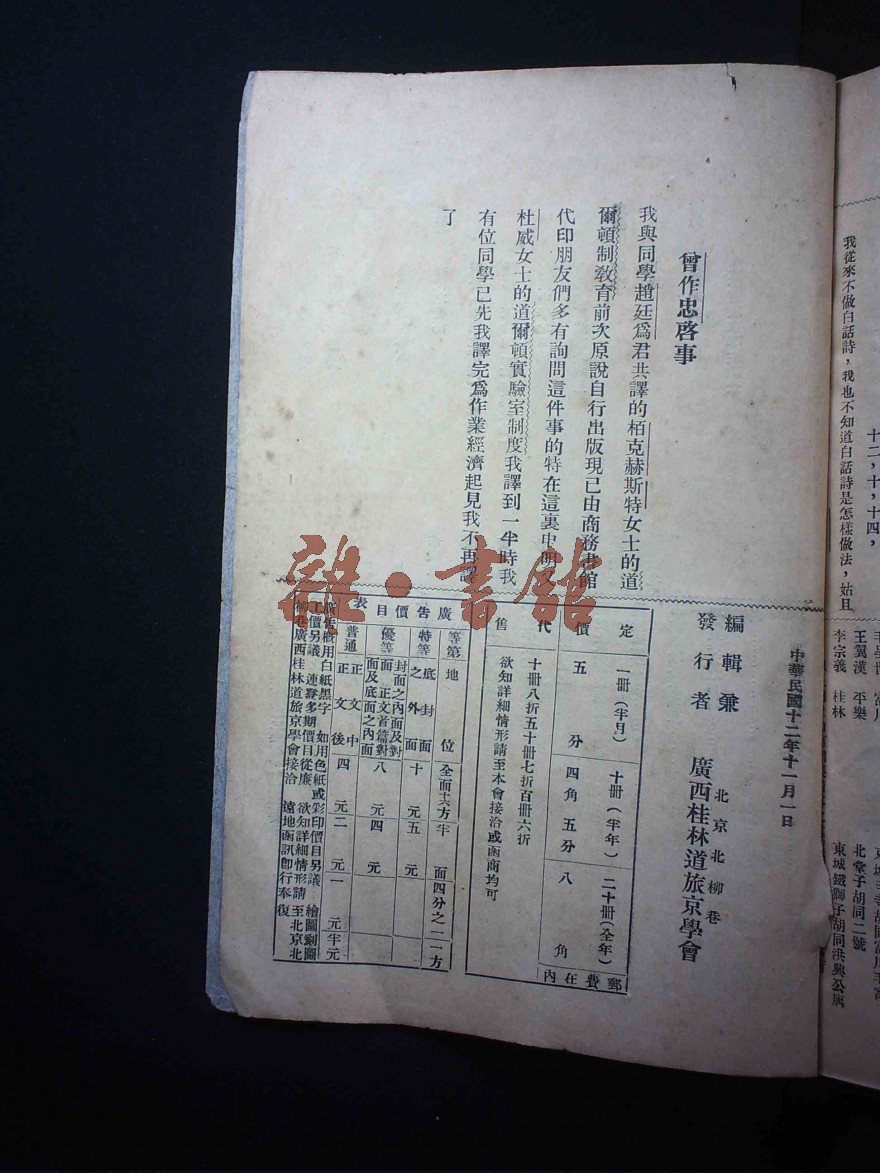 十二，十，十四，
我從來不做白話詩，我也不知道白話詩是怎樣做法，始且
王翼漢　平樂
北堂子胡同二號
李宗義　桂林
東城鐵獅子胡同洪興公寓
曾作忠啓事
我與同學趙廷爲君共譯的柏克赫斯特女士的道
爾頓制敎育前次原說自行出版現已由商務書館
代印朋友們多有詢問這件事的特在這裏申明又
杜威女士的道爾頓實驗室制度我譯到一半時我
有位同學已先我譯完爲作業經濟起見我不再譯
了
中華民國十二年十一月一日
編輯兼
發行者
北京北柳巷
廣西桂林道旅京學會
定價
一冊（半月）
十冊（半年）
二十冊（全年）
郵費在內
五分
四角五分
八角
代售
十冊八折五十冊七折百冊六折
欲知詳細情形請至本會接洽或函商均可
廣告價目表
等第
地位
全面十六方
半面
四分之一
一方
特等
底封面之外面
十元
五元
優等
封面之內面及對面、正文首篇對面及底面之內面
八元
四元
普通
正文中正文後
四元
二元
一元
半元
廣告概用白紙黑字　如用色紙或彩印價目另議　繪圖刻圖
工價另議　連登多期價目從廉　欲知詳細情形請至北京北
柳巷廣西桂林道旅京學會接洽　遠地函訊卽行奉復
雜·書館